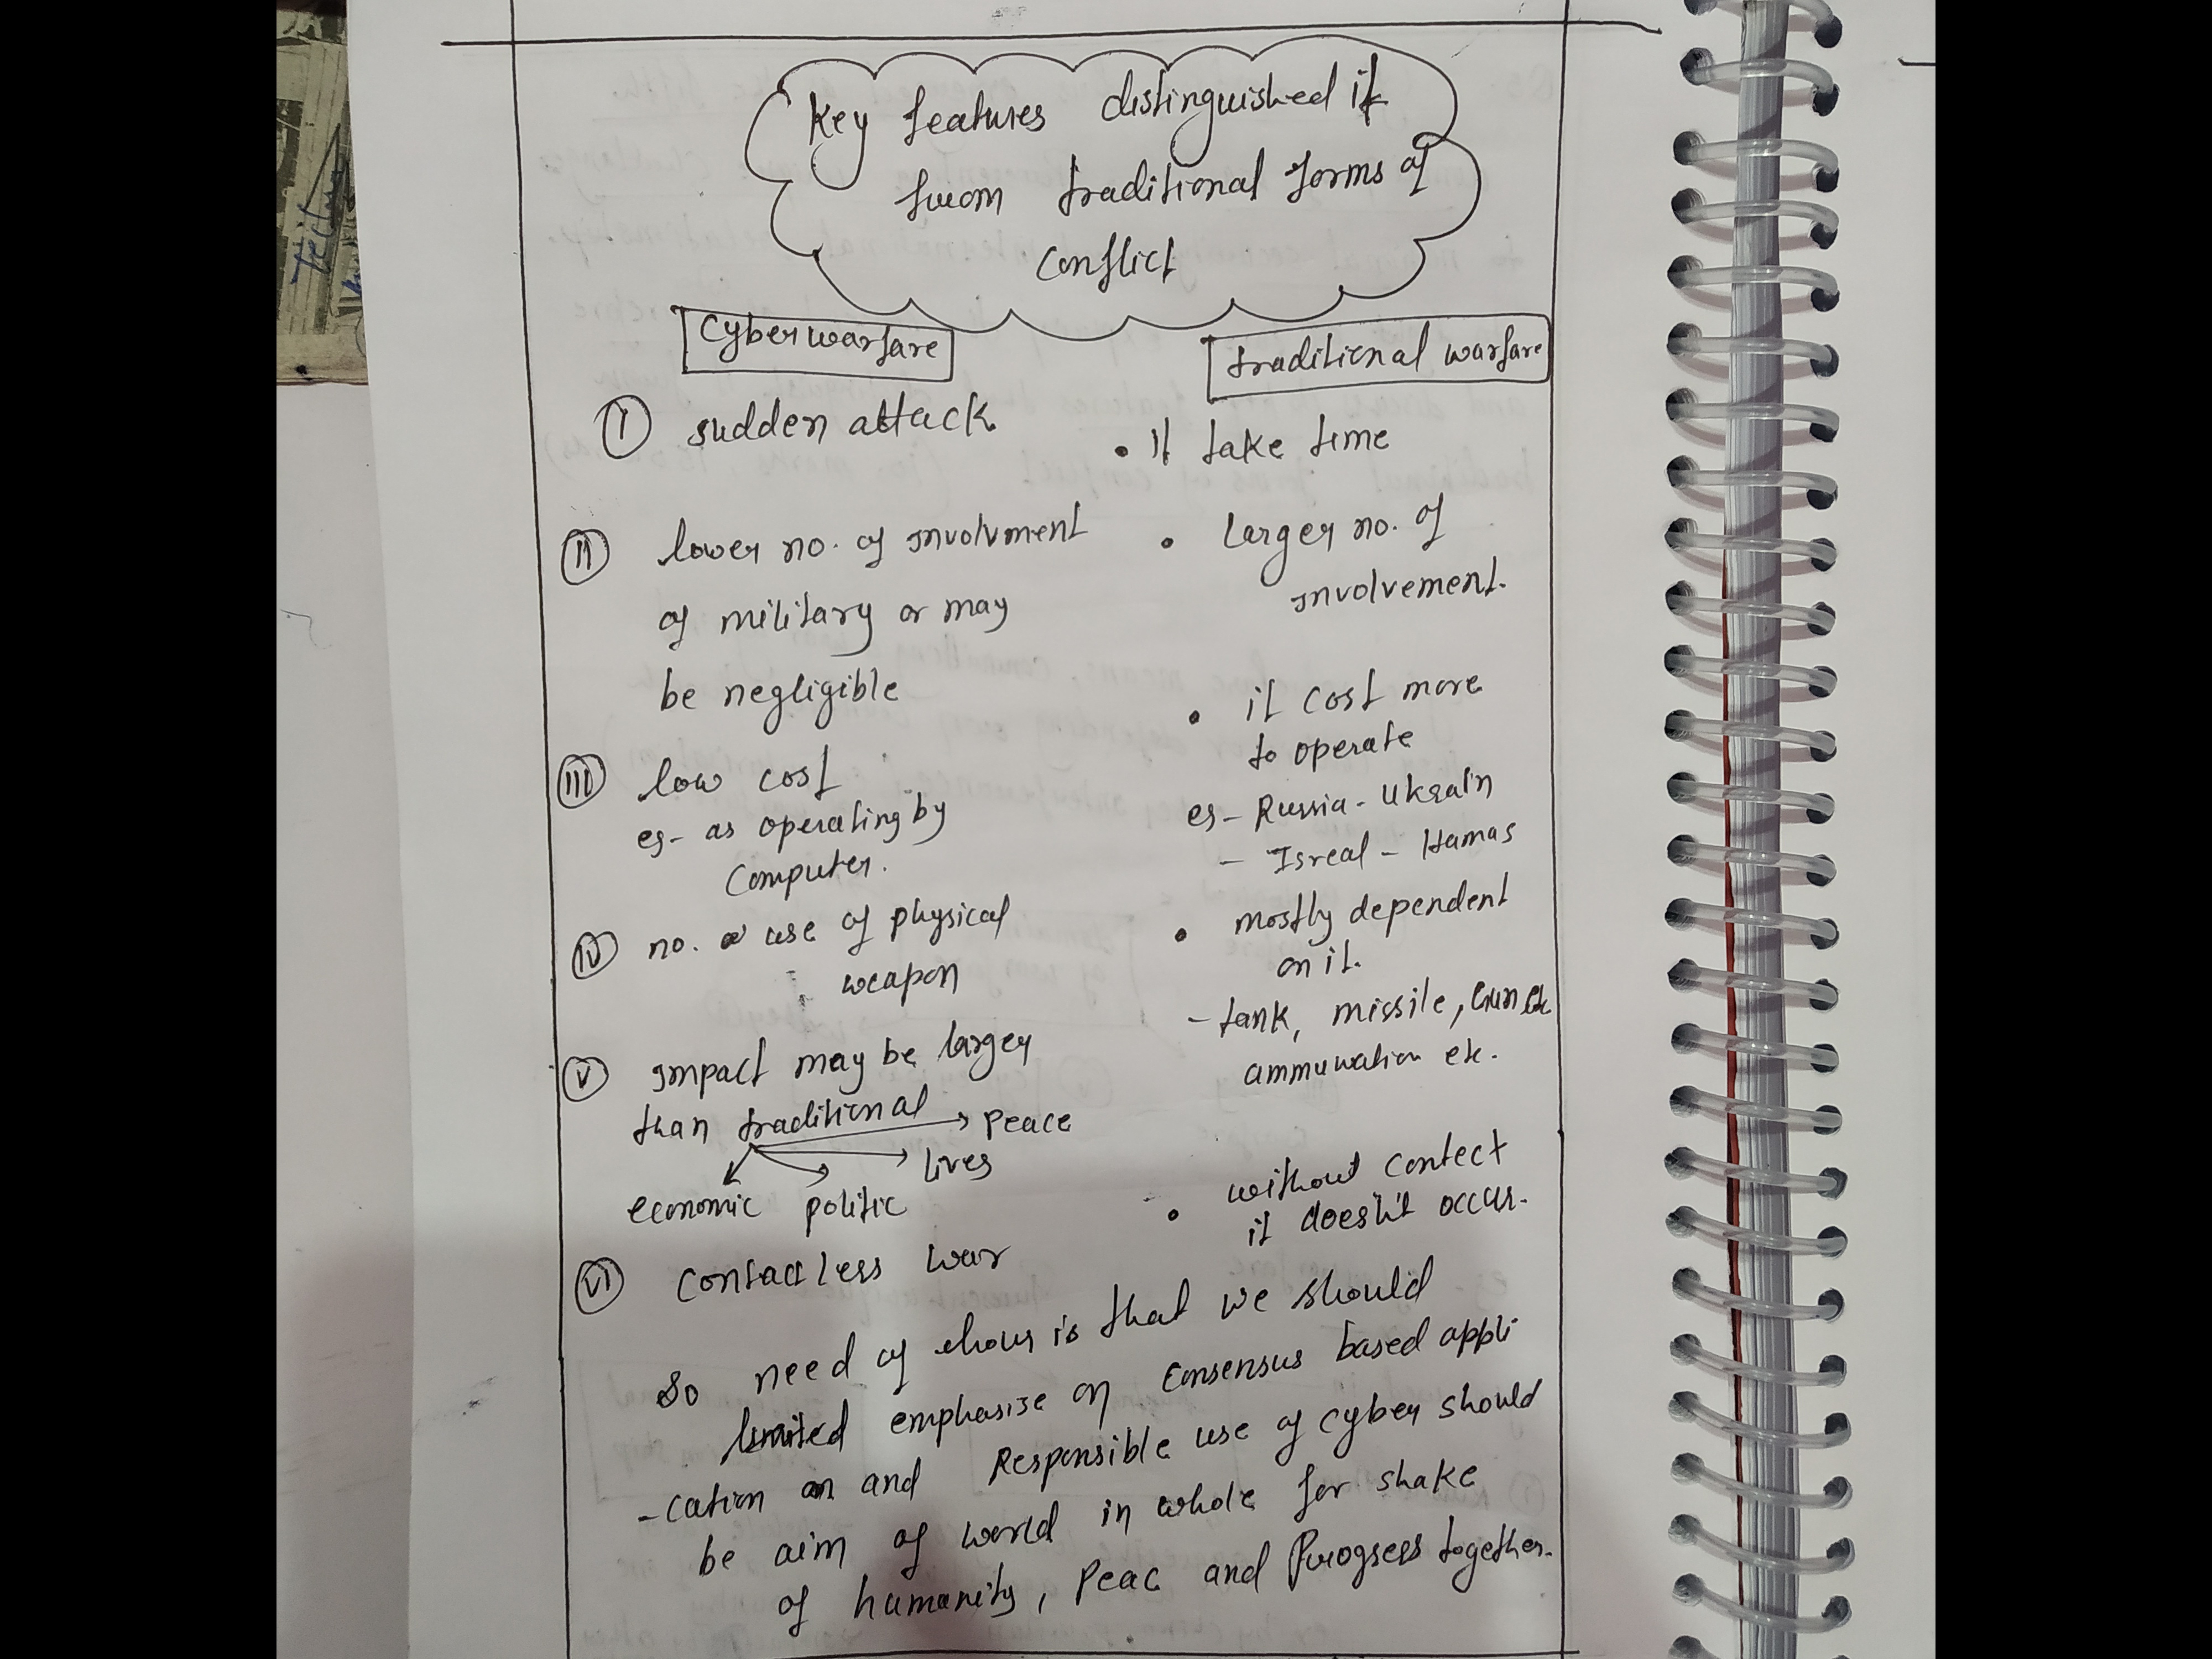 Key features distinguished it
from traditional forms of
conflict
Cyberwarfare
traditional warfare
I sudden attack
• It take time
II lower no. of involvment
of military or may
be negligible
• Larger no. of
involvement.
III low cost
eg- as operating by
Computer.
• it cost more
to operate
eg- Russia - Ukrain
- Isreal - Hamas
IV no. use of physical
weapon
• mostly dependent
on it.
- tank, missile, Gun etc
ammunation etc.
V Impact may be larger
than traditional
Peace
lives
economic politic
VI Contactless war
• without contect
it doesn't occur.
So need of hour is that we should
limited emphasize on consensus based appli
-cation and Responsible use of cyber should
be aim of world in whole for shake
of humanity, Peac and Progress together.